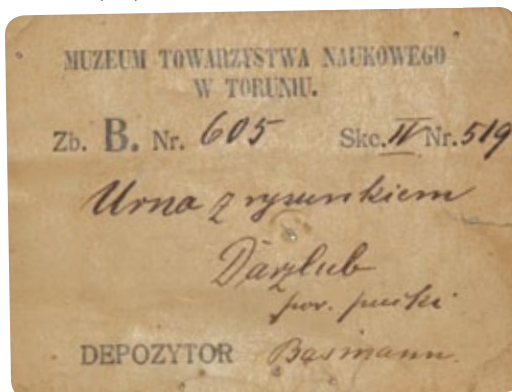 MUZEUM TOWARZYSTWA NAUKOWEGO
W TORUNIU.
Zb. B. Nr. 605 Skc. II Nr. 519
Urna z rysunkiem
Darzlub
pow. pucki
DEPOZYTOR Basmann.